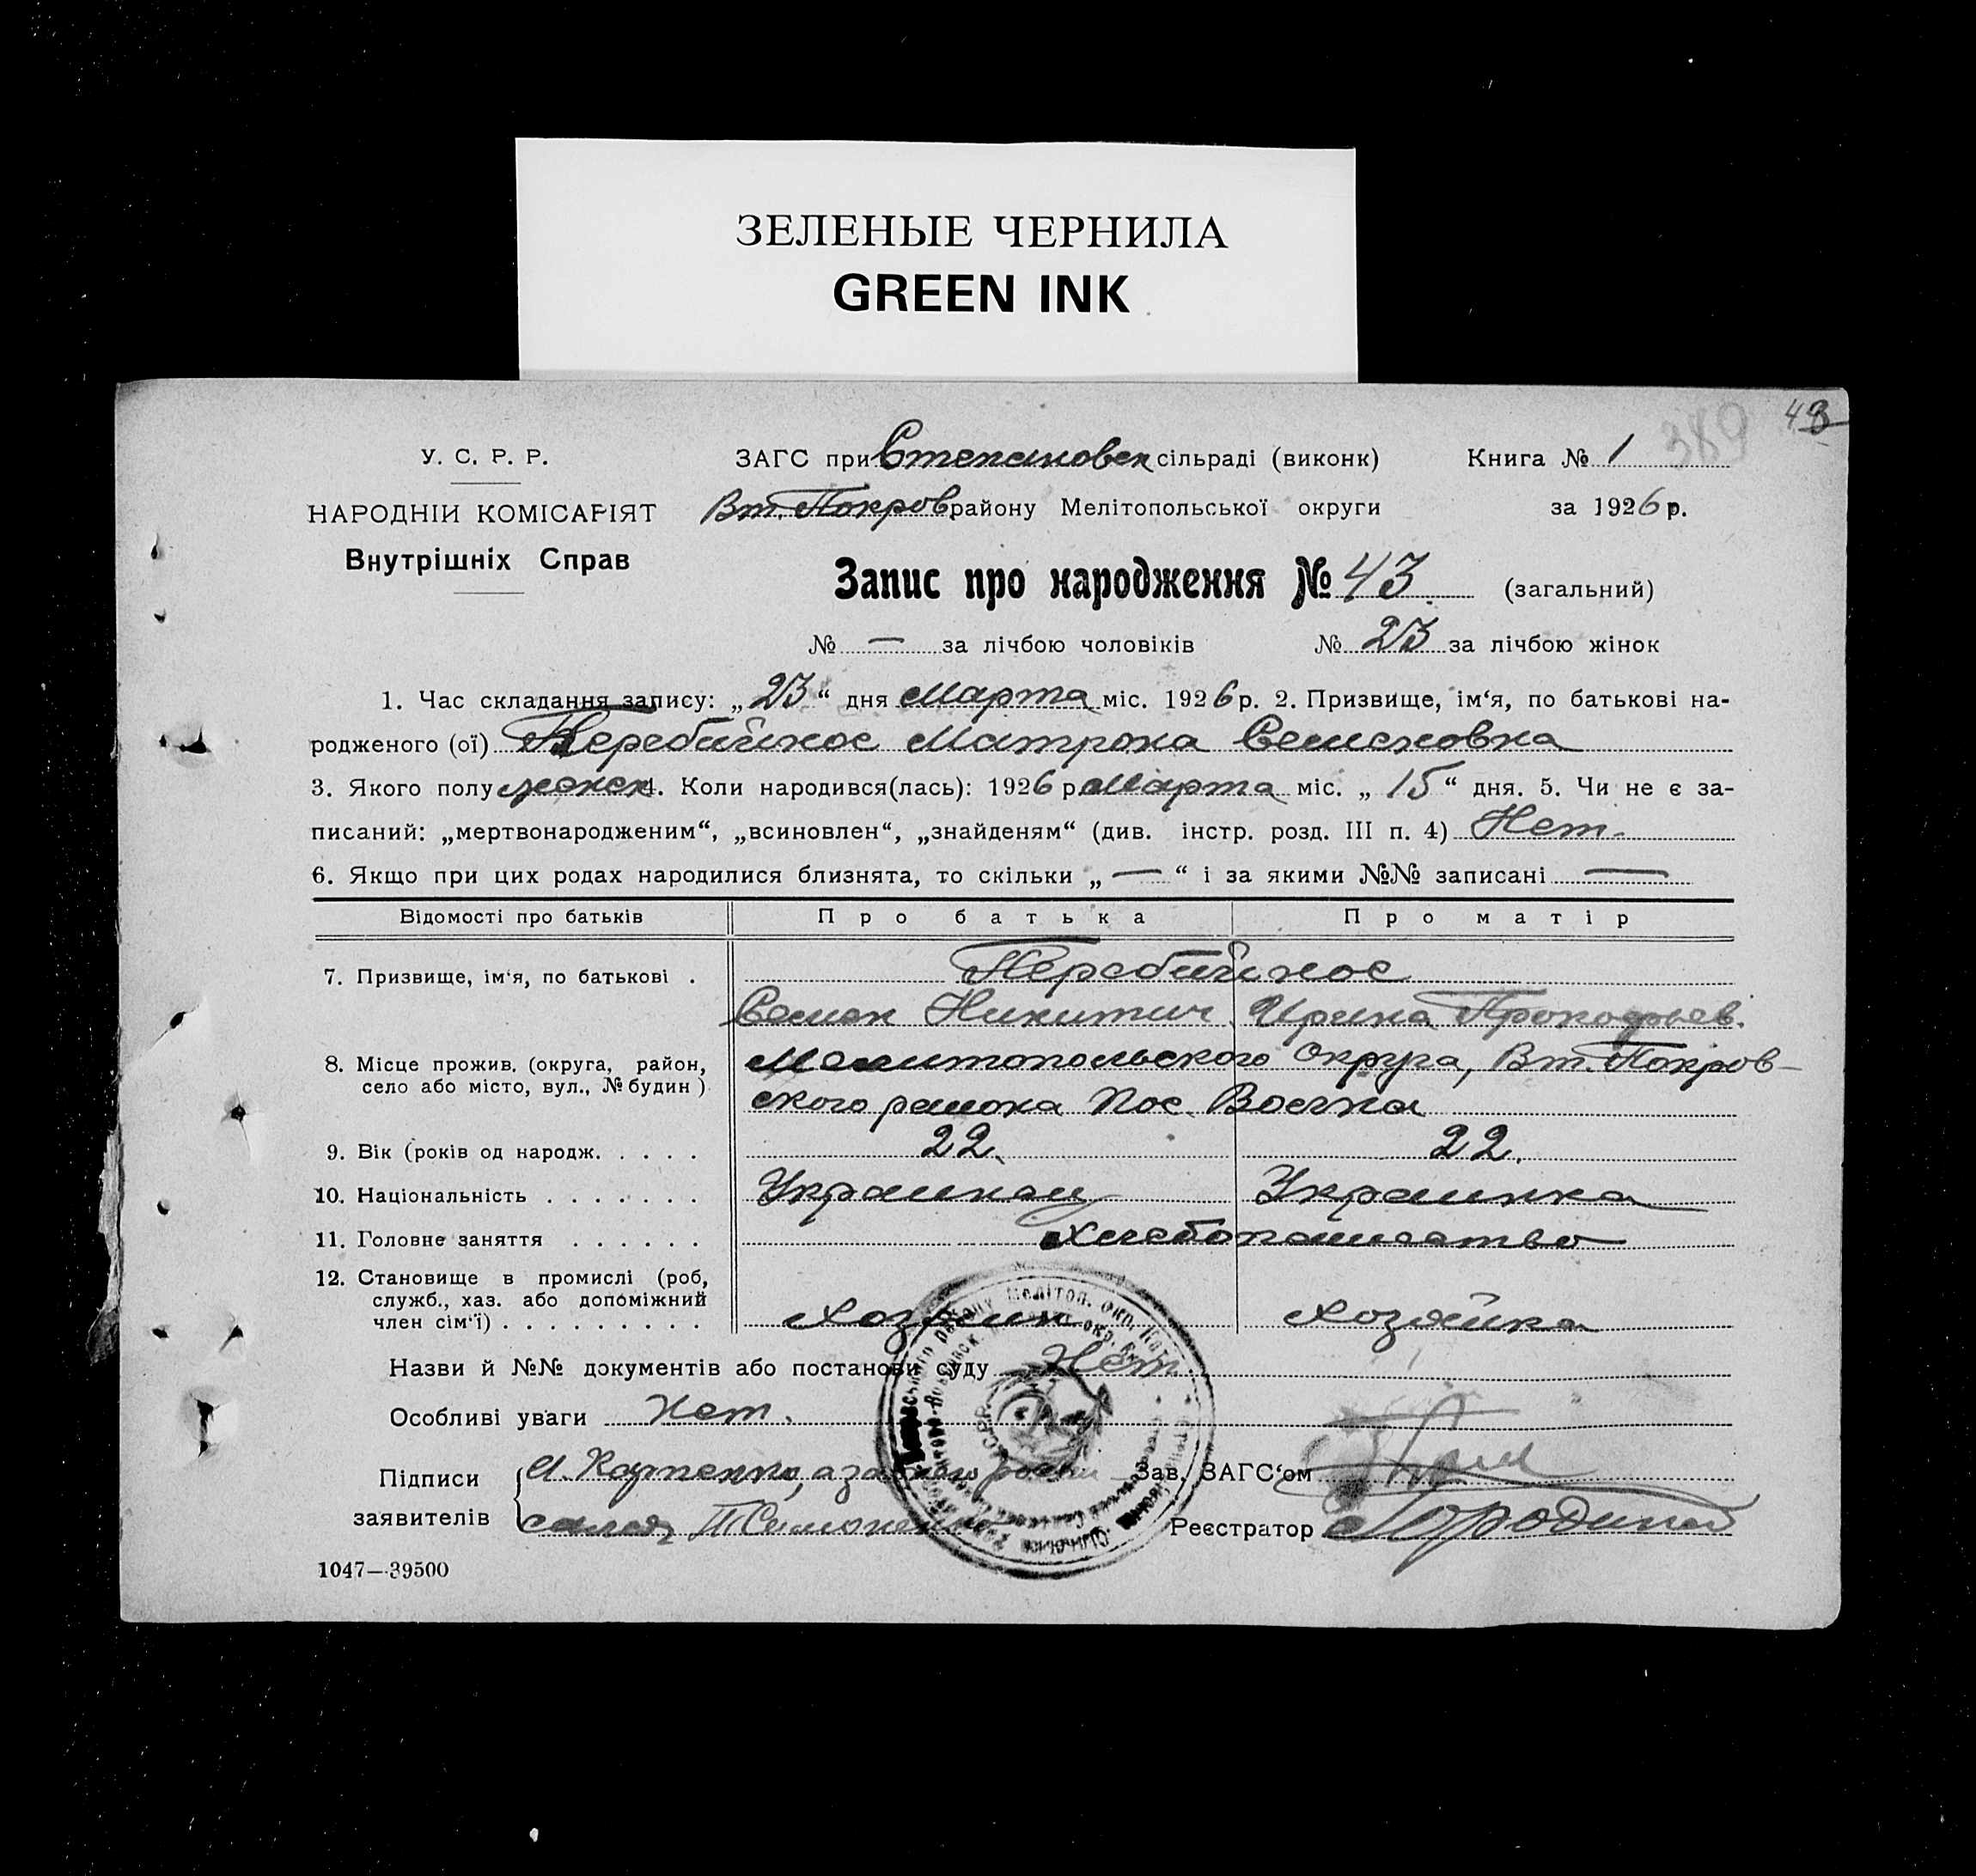 ЗЕЛЕНЫЕ ЧЕРНИЛА
GREEN INK
389 43
У. С. Р. Р.
ЗАГС при Степановск сільраді (виконк) Книга № 1
НАРОДНІЙ КОМІСАРІЯТ
Вт. Покров району Мелітопольської округи за 1926 р.
Внутрішніх Справ
Запис про народження № 43 (загальний)
№ — за лічбою чоловіків № 23 за лічбою жінок
1. Час складання запису: „23“ дня марта міс. 1926 р. 2. Призвище, ім‘я, по батькові на-
родженого (ої) Перебийнос Матрона Семеновна
3. Якого полу женск 4. Коли народився(лась): 1926 р. марта міс. „15“ дня. 5. Чи не є за-
писаний: „мертвонародженим“, „всиновлен“, „знайденям“ (див. інстр. розд. III п. 4) Нет.
6. Якщо при цих родах народилися близнята, то скільки „—“ і за якими №№ записані —
Відомості про батьків Про батька Про матір
7. Призвище, ім‘я, по батькові . Перебийнос
Семен Никитич Ирина Прокофьев.
8. Місце прожив. (округа, район, Мелитопольского Округа, Вт. Покров-
село або місто, вул., № будин) ского района пос.
9. Вік (років од народж. . . . . 22. 22.
10. Національність . . . . . . . Украинец Украинка
11. Головне заняття . . . . . . Хлебопашество
12. Становище в промислі (роб, служб., хаз. або допоміжний член сім‘ї) . . . . . . . . . Хозяин Хозяйка
Назви й №№ документів або постанови суду Нет
Особливі уваги Нет.
Підписи заявителів
Зав. ЗАГС‘ом
Реєстратор
1047—39500